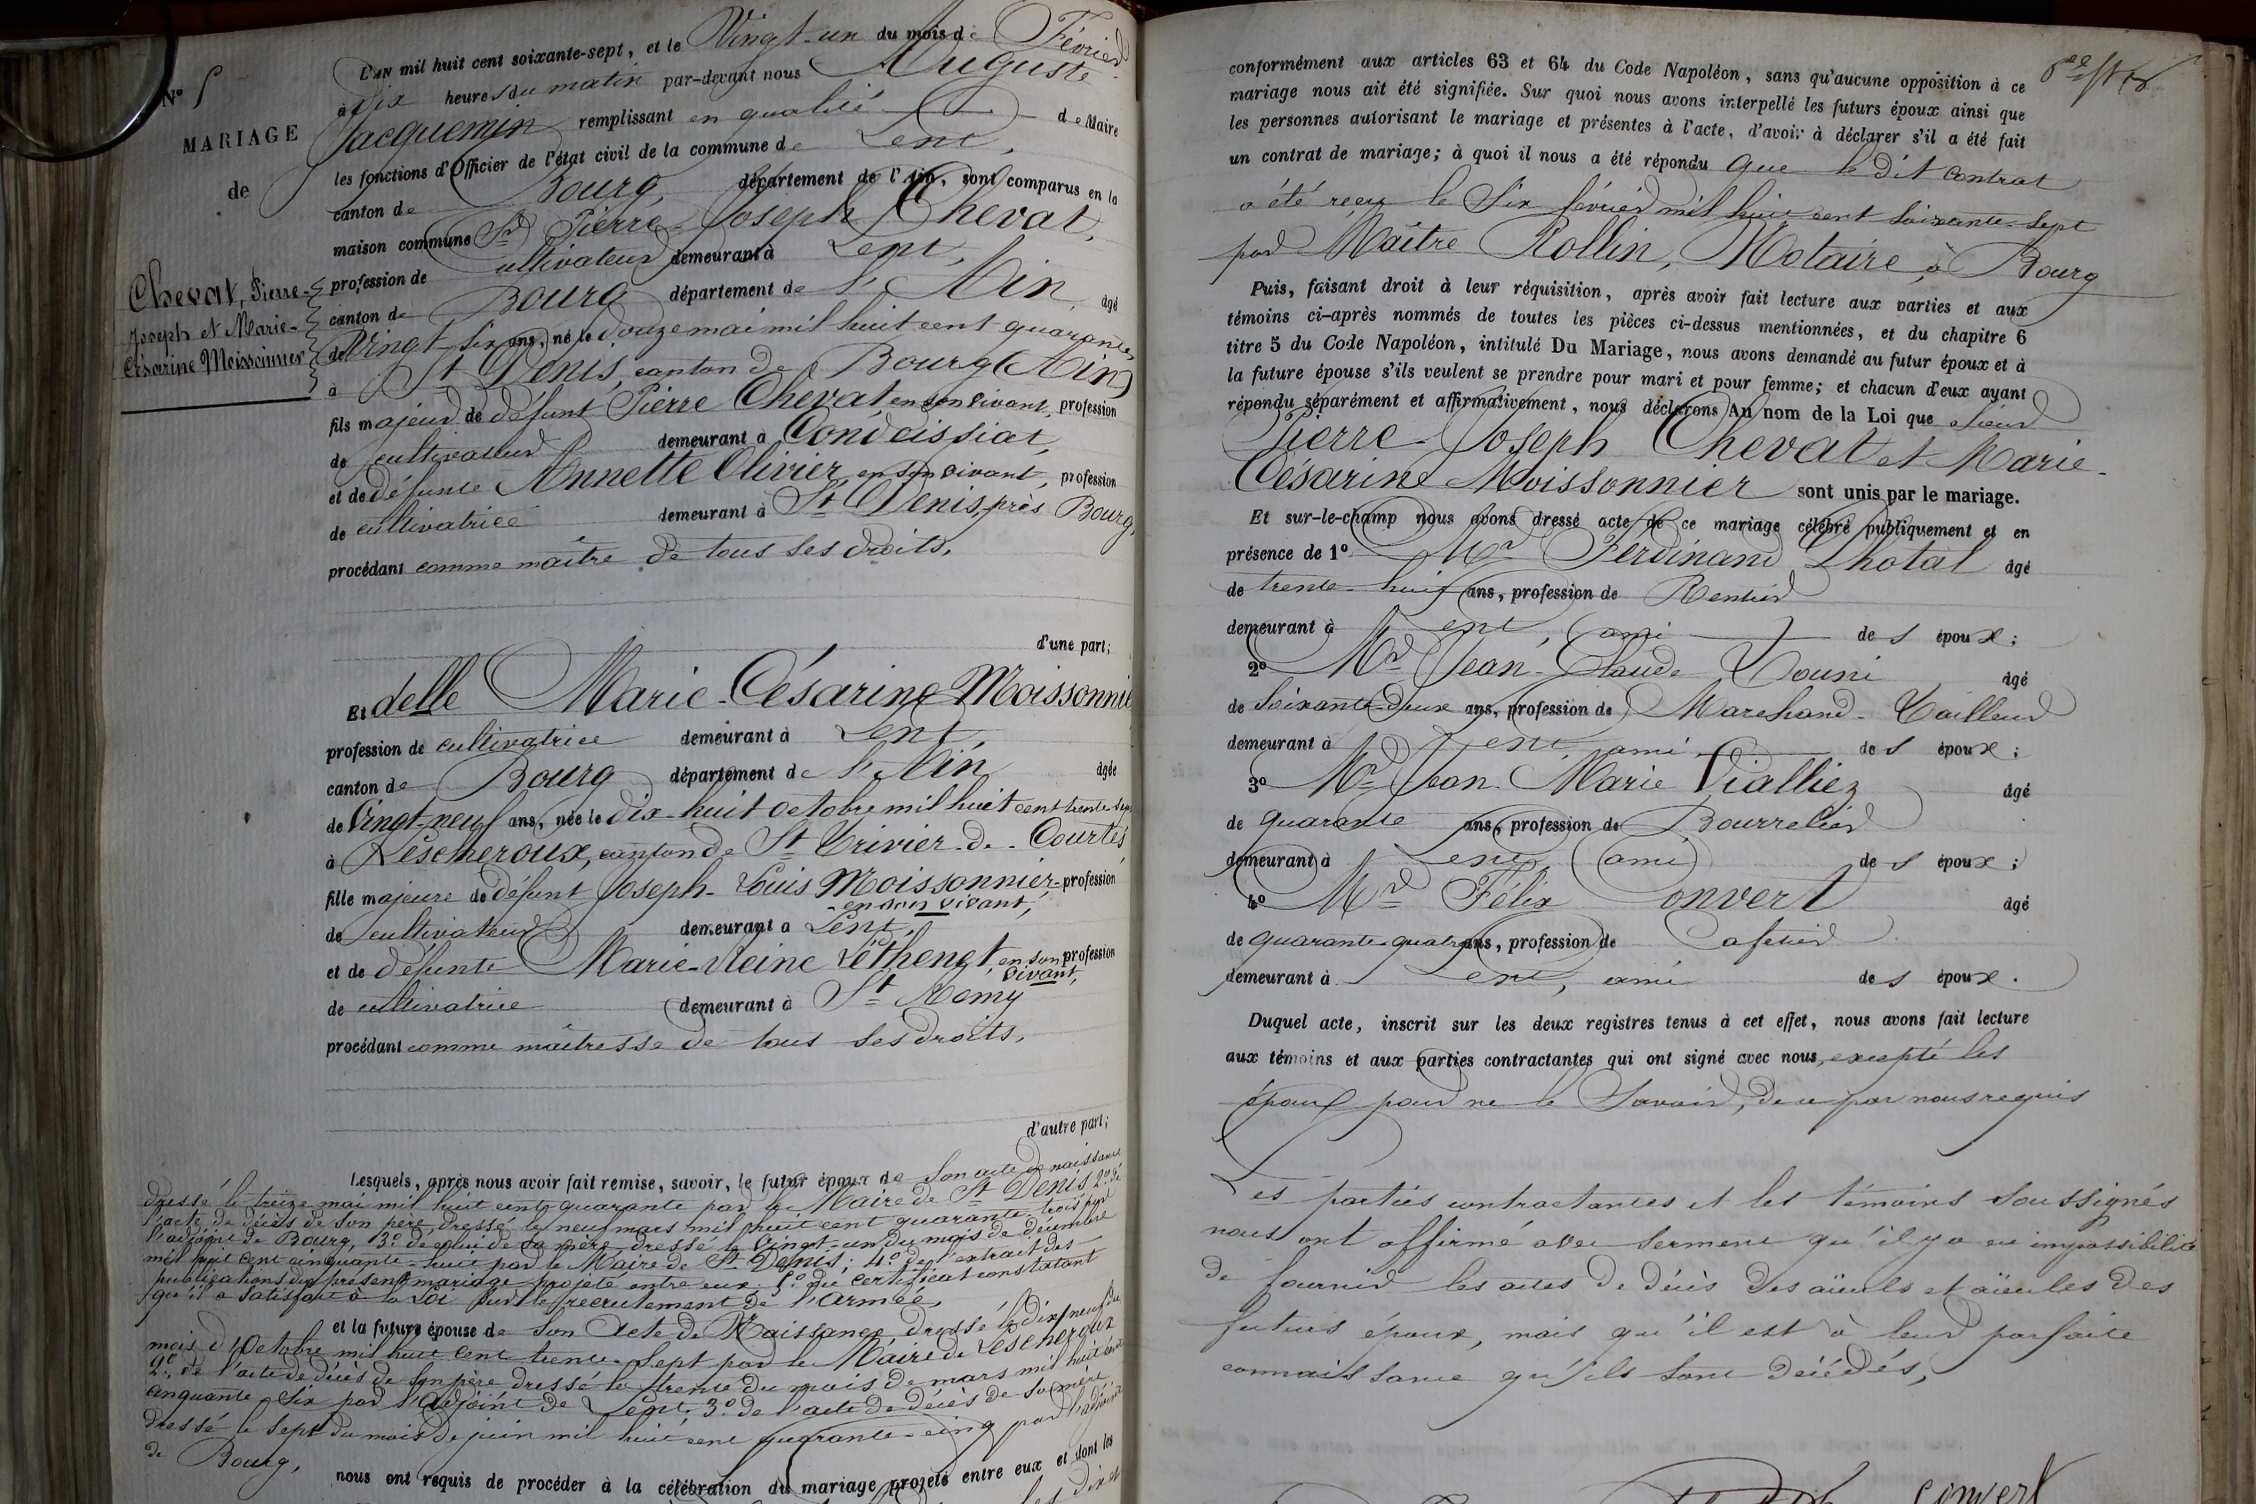 L'AN mil huit cent soixante-sept, et le Vingt-un du mois de Février
N° 5
à dix heures du matin par-devant nous Auguste
Jacquemin remplissant en qualité de Maire
MARIAGE
les fonctions d'Officier de l'état civil de la commune de Lent,
de
canton de Bourg, département de l'Ain, sont comparus en la
maison commune Sr Pierre-Joseph Chevat,
profession de cultivateur demeurant à Lent,
Chevat, Pierre-
Joseph et Marie-
Césarine Moissonnier
canton de Bourg département de l'Ain, âgé
de Vingt-six ans, né le douze mai mil huit cent quarante,
à St Denis, canton de Bourg (Ain)
fils majeur de défunt Pierre Chevat en son vivant, profession
de cultivateur demeurant à Condeissiat,
et de défunte Annette Olivier, en son vivant, profession
de cultivatrice demeurant à St Denis, près Bourg,
procédant comme maître de tous ses droits,
d'une part;
Et delle Marie-Césarine Moissonnier
profession de cultivatrice demeurant à Lent,
canton de Bourg département de l'Ain âgée
de Vingt-neuf ans, née le dix-huit octobre mil huit cent trente-sept
à Lescheroux, canton de St Trivier-de-Courtes
fille majeure de défunt Joseph-Louis Moissonnier profession
-en son vivant,
de cultivateur demeurant à Lent,
et de défunte Marie-Reine Léthenet, en son vivant, profession
de cultivatrice demeurant à St Remy
procédant comme maîtresse de tous ses droits,
d'autre part;
Lesquels, après nous avoir fait remise, savoir, le futur époux de son acte de naissance
dressé le treize mai mil huit cent quarante par le Maire de St Denis 2° de
l'acte de décès de son père dressé le neuf mars mil huit cent quarante-trois par
l'adjoint de Bourg, 3° de celui de sa mère dressé le vingt-un du mois de décembre
mil huit cent cinquante-huit par le Maire de St Denis; 4° de l'extrait des
publications du présent mariage projeté entre eux, 5° du certificat constatant
qu'il a satisfait à la loi sur le recrutement de l'armée,
et la future épouse de son Acte de Naissance dressé le dix-neuf du
mois d'Octobre mil huit cent trente-sept par le Maire de Lescheroux
2° de l'acte de décès de son père dressé le trente du mois de mars mil huit cent
cinquante-six par l'adjoint de Lent, 3° de l'acte de décès de sa mère
dressé le sept du mois de juin mil huit cent quarante-cinq par l'adjoint
de Bourg,
nous ont requis de procéder à la célébration du mariage projeté entre eux et dont les
conformément aux articles 63 et 64 du Code Napoléon, sans qu'aucune opposition à ce
mariage nous ait été signifiée. Sur quoi nous avons interpellé les futurs époux ainsi que
les personnes autorisant le mariage et présentes à l'acte, d'avoir à déclarer s'il a été fait
un contrat de mariage; à quoi il nous a été répondu que le dit contrat
a été reçu le six février mil huit cent soixante-sept
par Maître Rollin, Notaire à Bourg
Puis, faisant droit à leur réquisition, après avoir fait lecture aux parties et aux
témoins ci-après nommés de toutes les pièces ci-dessus mentionnées, et du chapitre 6
titre 5 du Code Napoléon, intitulé Du Mariage, nous avons demandé au futur époux et à
la future épouse s'ils veulent se prendre pour mari et pour femme; et chacun d'eux ayant
répondu séparément et affirmativement, nous déclarons Au nom de la Loi que sieur
Pierre-Joseph Chevat et Marie-
Césarine Moissonnier sont unis par le mariage.
Et sur-le-champ nous avons dressé acte de ce mariage célébré publiquement et en
présence de 1° Mr Ferdinand Lhotal âgé
de trente-huit ans, profession de Rentier
demeurant à Lent, ami des époux;
2° Mr Jean-Claude Youni âgé
de soixante-deux ans, profession de Marchand-Tailleur
demeurant à Lent ami des époux;
3° Mr Jean Marie Vialliez âgé
de quarante ans, profession de Bourrelier
demeurant à Lent, ami des époux;
4° Mr Félix Convert âgé
de quarante-quatre ans, profession de Cafetier
demeurant à Lent, ami des époux.
Duquel acte, inscrit sur les deux registres tenus à cet effet, nous avons fait lecture
aux témoins et aux parties contractantes qui ont signé avec nous, excepté les
époux pour ne le savoir, de ce par nous requis
Les parties contractantes et les témoins soussignés
nous ont affirmé avec serment qu'il y a eu impossibilité
de fournir les actes de décès des aïeuls et aïeules des
futurs époux, mais qu'il est à leur parfaite
connaissance qu'ils sont décédés,
Convert